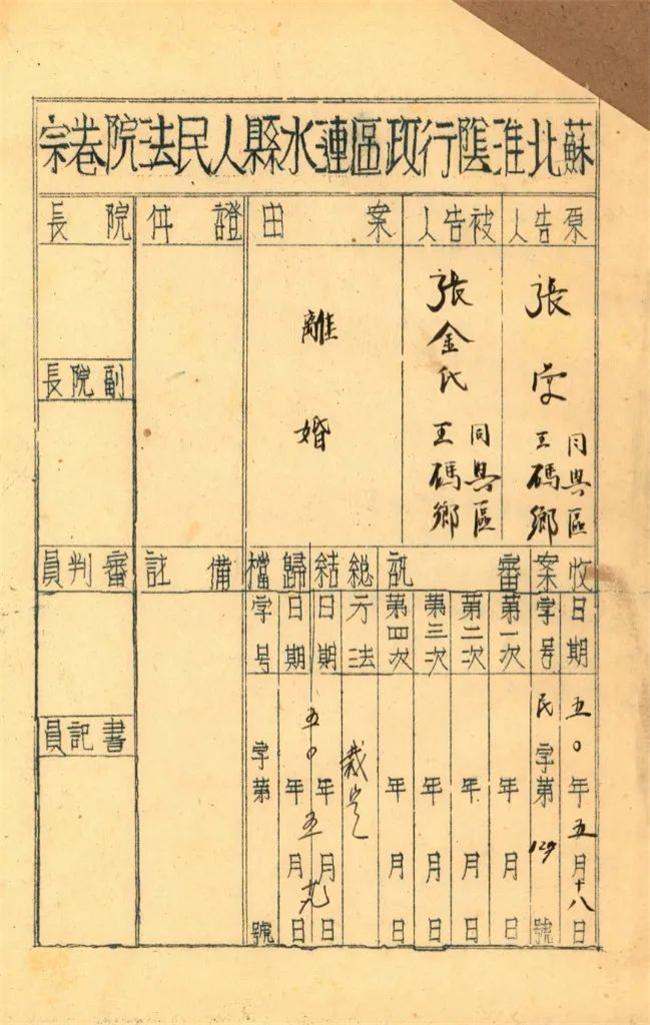 蘇北淮陰行政區漣水縣人民法院卷宗
原告人
張
同興區
王碼鄉
被告人
張金氏
同興區
王碼鄉
案由
離婚
證件
院長
副院長
收案
日期
五〇年五月十八日
字號
民字第129號
審訊
第一次
年月日
第二次
年月日
第三次
年月日
第四次
年月日
總結
方法
裁定
日期
年月日
歸檔
日期
五〇年五月廿九日
字號
字第號
備註
審判員
書記員